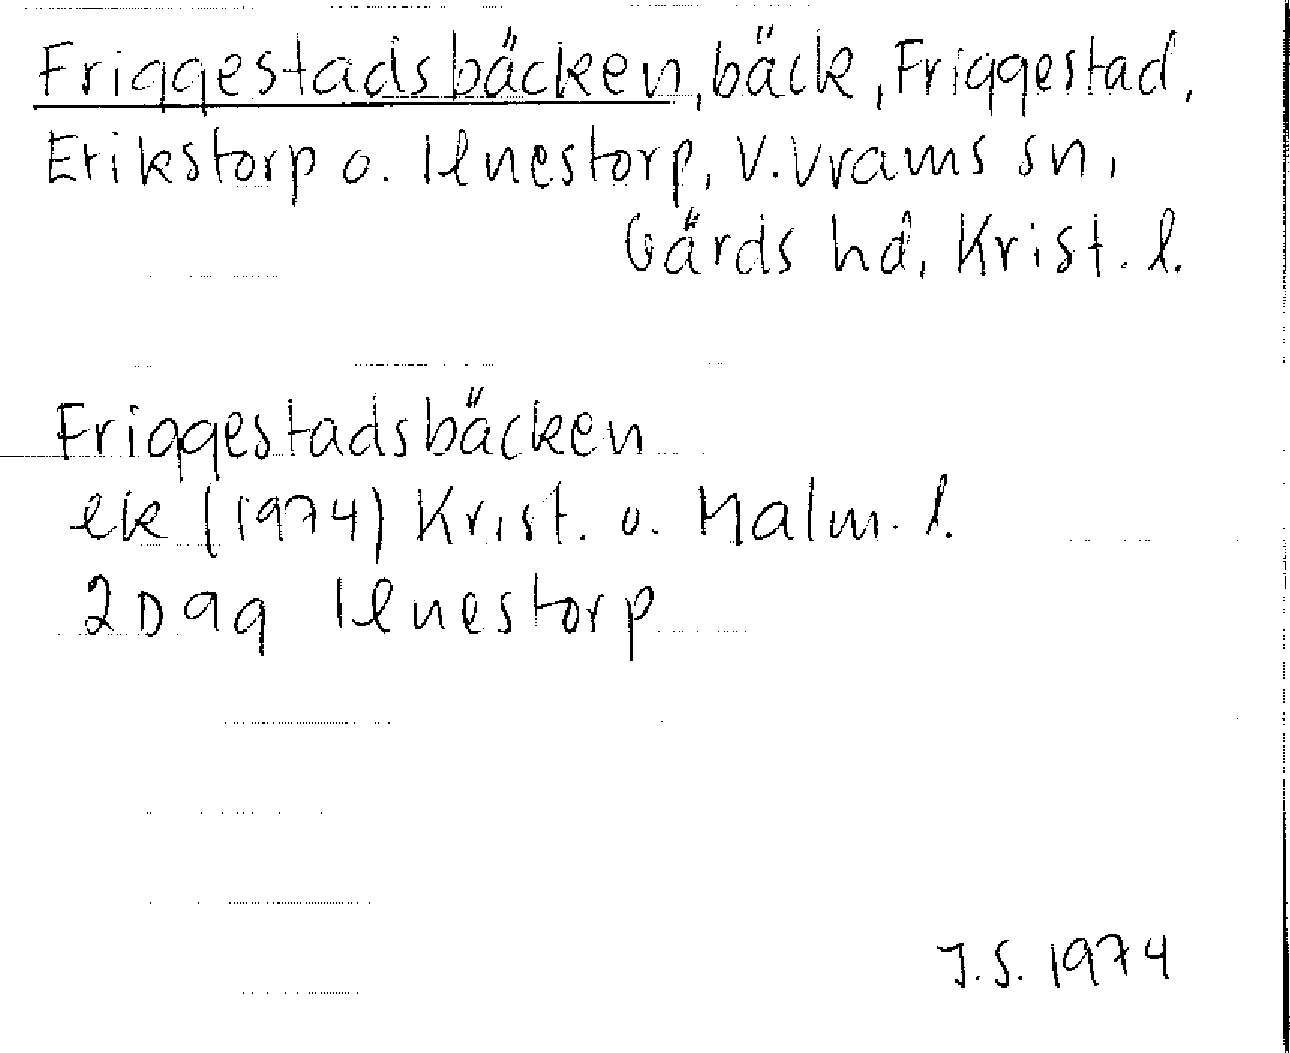 Friggestadsbäcken, bäck, Friggestad,
Erikstorp o. Ilnestorp, V. Vrams sn,
Gärds hd, Krist. l.
Friggestadsbäcken
ek (1974) Krist. o. Malm. l.
2D 9g Ilnestorp
J.S. 1974